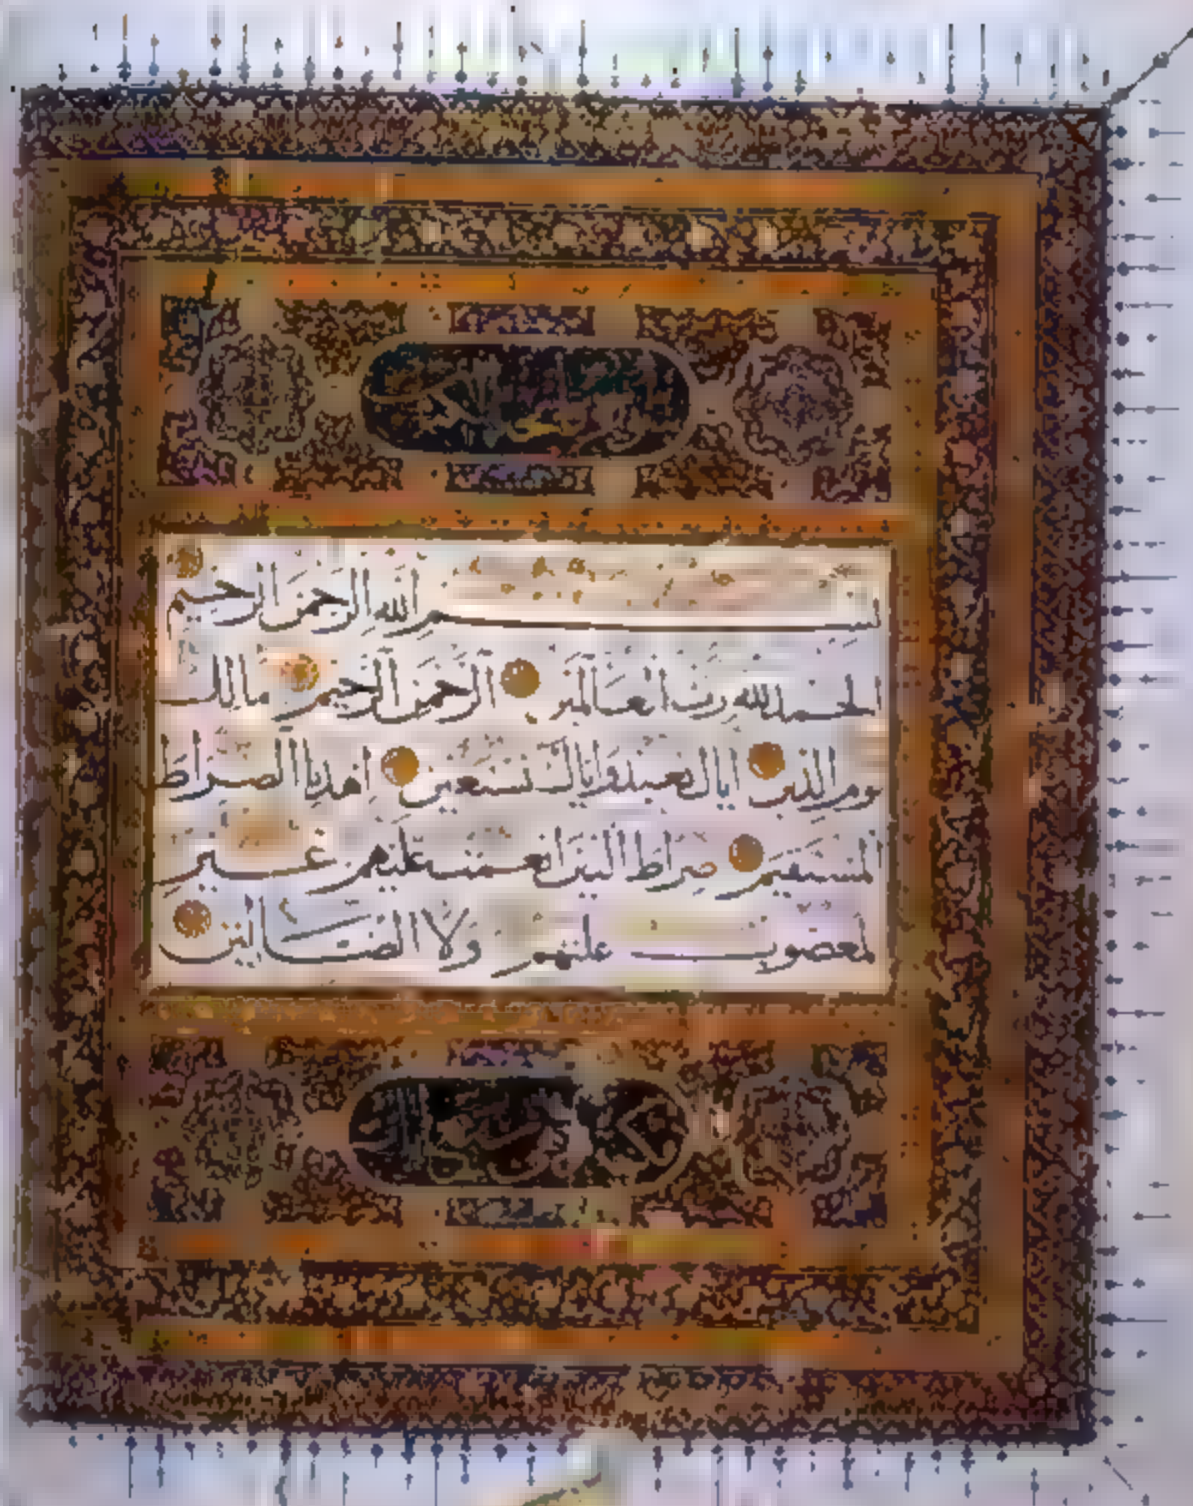 بسم الله الرحمن الرحيم
الحمد لله رب العالمين الرحمن الرحيم مالك
يوم الدين اياك نعبد واياك نستعين اهدنا الصراط
المستقيم صراط الذين انعمت عليهم غير
المغضوب عليهم ولا الضالين